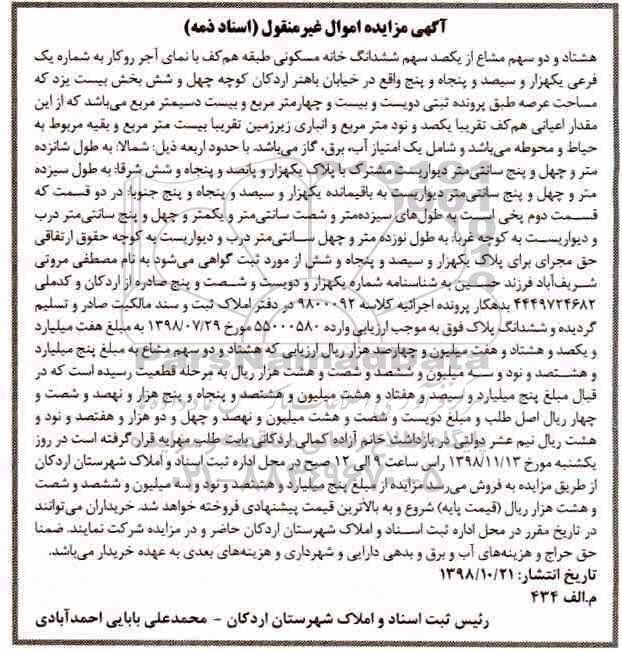 آگهی مزایده اموال غیرمنقول (اسناد ذمه)
هشتاد و دو سهم مشاع از یکصد سهم ششدانگ خانه مسکونی طبقه هم‌کف با نمای آجر روکار به شماره یک
فرعی یکهزار و سیصد و پنجاه و پنج واقع در خیابان باهنر اردکان کوچه چهل و شش بخش بیست یزد که
مساحت عرصه طبق پرونده ثبتی دویست و بیست و چهارمتر مربع و بیست دسیمتر مربع می‌باشد که از این
مقدار اعیانی هم‌کف تقریبا یکصد و نود متر مربع و انباری زیرزمین تقریبا بیست متر مربع و بقیه مربوط به
حیاط و محوطه می‌باشد و شامل یک امتیاز آب، برق، گاز می‌باشد. با حدود اربعه ذیل: شمالا: به طول شانزده
متر و چهل و پنج سانتی‌متر دیواریست مشترک با پلاک یکهزار و پانصد و پنجاه و شش شرقا: به طول سیزده
متر و چهل و پنج سانتی‌متر دیواریست به باقیمانده یکهزار و سیصد و پنجاه و پنج جنوبا: در دو قسمت که
قسمت دوم پخی است به طول‌های سیزده‌متر و شصت سانتی‌متر و یکمتر و چهل و پنج سانتی‌متر درب
و دیواریست به کوچه غربا: به طول نوزده متر و چهل سانتی‌متر درب و دیواریست به کوچه حقوق ارتفاقی
حق مجرای برای پلاک یکهزار و سیصد و پنجاه و شش از مورد ثبت گواهی می‌شود به نام مصطفی مروتی
شریف‌آباد فرزند حسین به شناسنامه شماره یکهزار و دویست و شصت و پنج صادره از اردکان و کدملی
۴۴۴۹۷۲۴۶۸۲ بدهکار پرونده اجرائیه کلاسه ۹۸۰۰۰۹۲ در دفتر املاک ثبت و سند مالکیت صادر و تسلیم
گردیده و ششدانگ پلاک فوق به موجب ارزیابی وارده ۵۵۰۰۰۵۸۰ مورخ ۱۳۹۸/۰۷/۲۹ به مبلغ هفت میلیارد
و یکصد و هشتاد و هفت میلیون و چهارصد هزار ریال ارزیابی که هشتاد و دو سهم مشاع به مبلغ پنج میلیارد
و هشتصد و نود و سه میلیون و ششصد و شصت و هشت هزار ریال به مرحله قطعیت رسیده است که در
قبال مبلغ پنج میلیارد و سیصد و هفتاد و هشت میلیون و هشتصد و پنجاه و پنج هزار و نهصد و شصت و
چهار ریال اصل طلب و مبلغ دویست و شصت و هشت میلیون و نهصد و چهل و دو هزار و هفتصد و نود و
هشت ریال نیم عشر دولتی در بازداشت خانم آزاده کمالی اردکانی بابت طلب مهریه قرار گرفته است در روز
یکشنبه مورخ ۱۳۹۸/۱۱/۱۳ راس ساعت ۹ الی ۱۲ صبح در محل اداره ثبت اسناد و املاک شهرستان اردکان
از طریق مزایده به فروش می‌رسد. مزایده از مبلغ پنج میلیارد و هشتصد و نود و سه میلیون و ششصد و شصت
و هشت هزار ریال (قیمت پایه) شروع و به بالاترین قیمت پیشنهادی فروخته خواهد شد. خریداران می‌توانند
در تاریخ مقرر در محل اداره ثبت اسناد و املاک شهرستان اردکان حاضر و در مزایده شرکت نمایند. ضمنا
حق حراج و هزینه‌های آب و برق و بدهی دارایی و شهرداری و هزینه‌های بعدی به عهده خریدار می‌باشد.
تاریخ انتشار: ۱۳۹۸/۱۰/۲۱
م.الف ۴۳۴
رئیس ثبت اسناد و املاک شهرستان اردکان - محمدعلی بابایی احمدآبادی